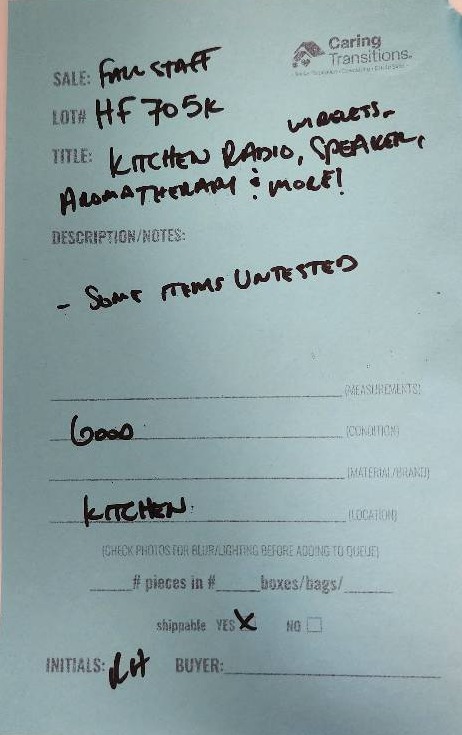 Caring
Transitions
SALE: FALL STAFF
LOT# HF705K
WIRELESS
TITLE: KITCHEN RADIO, SPEAKER,
AROMATHERAPY & MORE!
DESCRIPTION/NOTES:
- SOME ITEMS UNTESTED
(MEASUREMENTS)
GOOD (CONDITION)
(MATERIAL/BRAND)
KITCHEN (LOCATION)
(CHECK PHOTOS FOR BLUR/LIGHTING BEFORE ADDING TO QUEUE)
_____# pieces in #_____boxes/bags/_____
shippable YES X NO
INITIALS: RH BUYER: